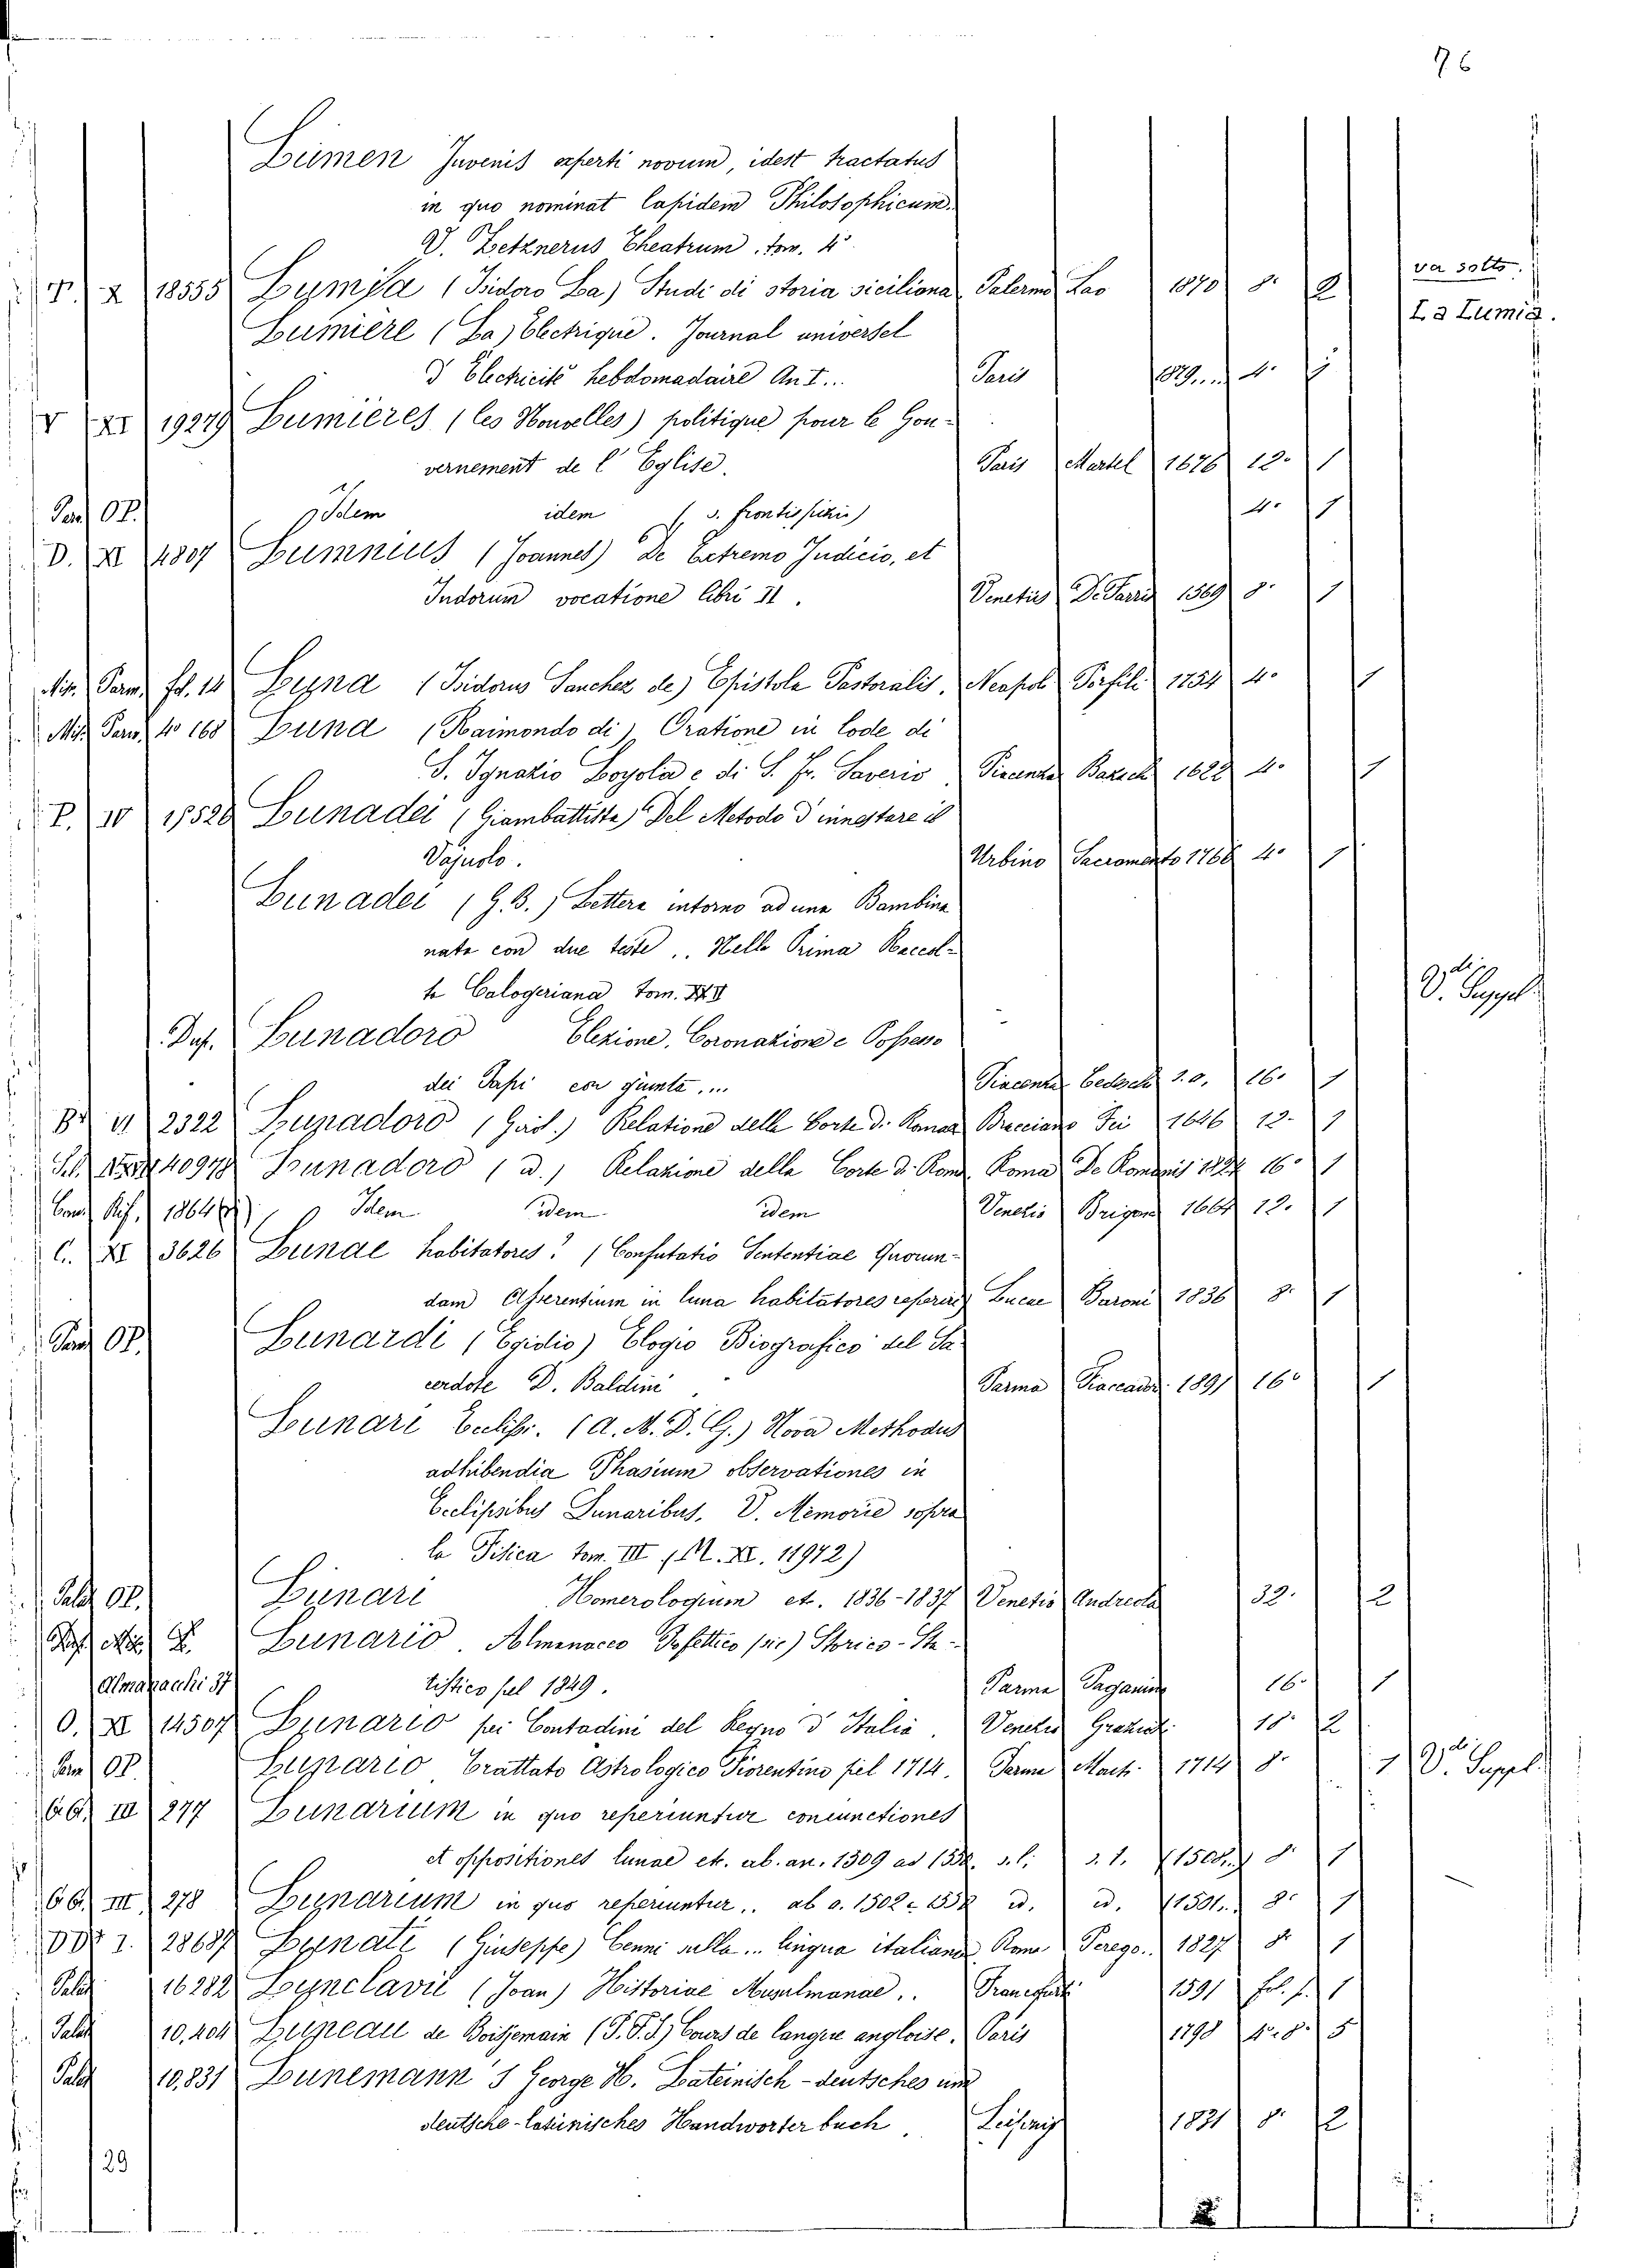 76
Lumen Juvenis experti novum, idest tractatus
in quo nominat lapidem Philosophicum.
V. Zetznerus Theatrum. tom. 4°
T. X 18555 Lumia (Isidoro La) Studi di storia siciliana Palermo Lao 1870 8. 2 va sotto.
La Lumia.
Lumière (La) Electrique. Journal universel
d'Electricité hebdomadaire An I... Paris 1879... 4. 1
V XI 19279 Lumieres (les Nouvelles) politique pour le Gou-
vernement de l'Eglise. Paris Martel 1676 12. 1
Par. OP. Idem idem (s. frontispizio) 4. 1
D. XI 4807 Lumnius (Joannes) De Extremo Judicio, et
Indorum vocatione libri II. Venetiis De Farris 1569 8. 1
Mis. Parm. fol. 14 Luna (Isidorus Sanchez de) Epistola Pastoralis. Neapol. Porfili 1754 4° 1
Mis. Parm. 4° 168 Luna (Raimondo di) Oratione in lode di
S. Ignazio Loyola e di S. Fr. Saverio Piacenza Bazach 1622 4° 1
P. IV 17520 Lunadei (Giambattista) Del Metodo d'innestare il
Vajuolo. Urbino 1768 4° 1
Lunadei (G.B.) Lettera intorno ad una Bambina
nata con due teste.. Nella Prima Raccol-
ta Calogeriana tom. XXII V. Suppl.
Dup. Lunadoro Elezione, Coronazione e Possesso
dei Papi con giunte.... Piacenza s.a. 16. 1
VI 2322 Lunadoro (Girol.) Relatione della Corte di Roma Bracciano Fei 1646 12. 1
40978 Lunadoro (id.) Relazione della Corte di Roma. Roma De Romanis 16° 1
1864 Idem idem idem Venetis Brigon 1664 12. 1
C. XI 3626 Lunae habitatores? (Confutatio Sententiae Quorun-
dam Asserentium in luna habitatores reperiri) Lucae Baroni 1836 8. 1
Parm. OP. Lunardi (Egidio) Elogio Biografico del Sa-
cerdote D. Baldini. Parma Fiaccador. 1891 16° 1
Lunari Eclipsi. (A. M. D. G.) Nova Methodus
adhibendia Phasium observationes in
Eclipsibus Lunaribus. V. Memorie sopra
la Fisica tom. III (M. XI. 11972)
Palat. OP. Lunari Homerologium etc. 1836-1837 Venetis Andreola 32. 2
Lunario. Almanacco Profettico (sic) Storico-Sta-
Almanacchi 37 tistico pel 1849. Parma Paganini 16. 1
O. XI 14507 Lunario pei Contadini del Regno d'Italia. Venezia 18. 2
Parm. OP. Lunario Trattato Astrologico Fiorentino pel 1714. Parma 1714 8. 1 V. Suppl.
GG. III 277 Lunarium in quo reperiuntur coniunctiones
et oppositiones lunae etc. ab. an. 1509 ad 1552. s.l. s.t. (150..) 8. 1
GG. III 278 Lunarium in quo reperiuntur.. ab a. 1502 - 1552 id. id. (1501..) 8. 1
DD 1. 28687 Lunati (Giuseppe) Cenni sulla... lingua italiana Roma Perego.. 1827 8. 1
Palat. 16282 Lunclavii (Joan) Historiae Musulmanae.. Francofurti 1591 fol. f. 1
Palat. 10,404 Luneau de Boisjemain (P.F.I.) Cours de langue angloise. Paris 1798 4. 8. 5
Palat. 10,831 Lunemann's George H. Lateinisch-deutsches und
deutsche-lateinisches Handworter buch. Leipzig 1831 8. 2
29